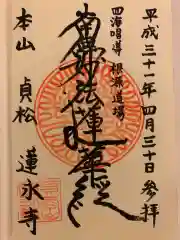 平成三十一年四月三十日参拝
四海唱導 根源道場
南無妙法蓮華経
本山 貞松 蓮永寺